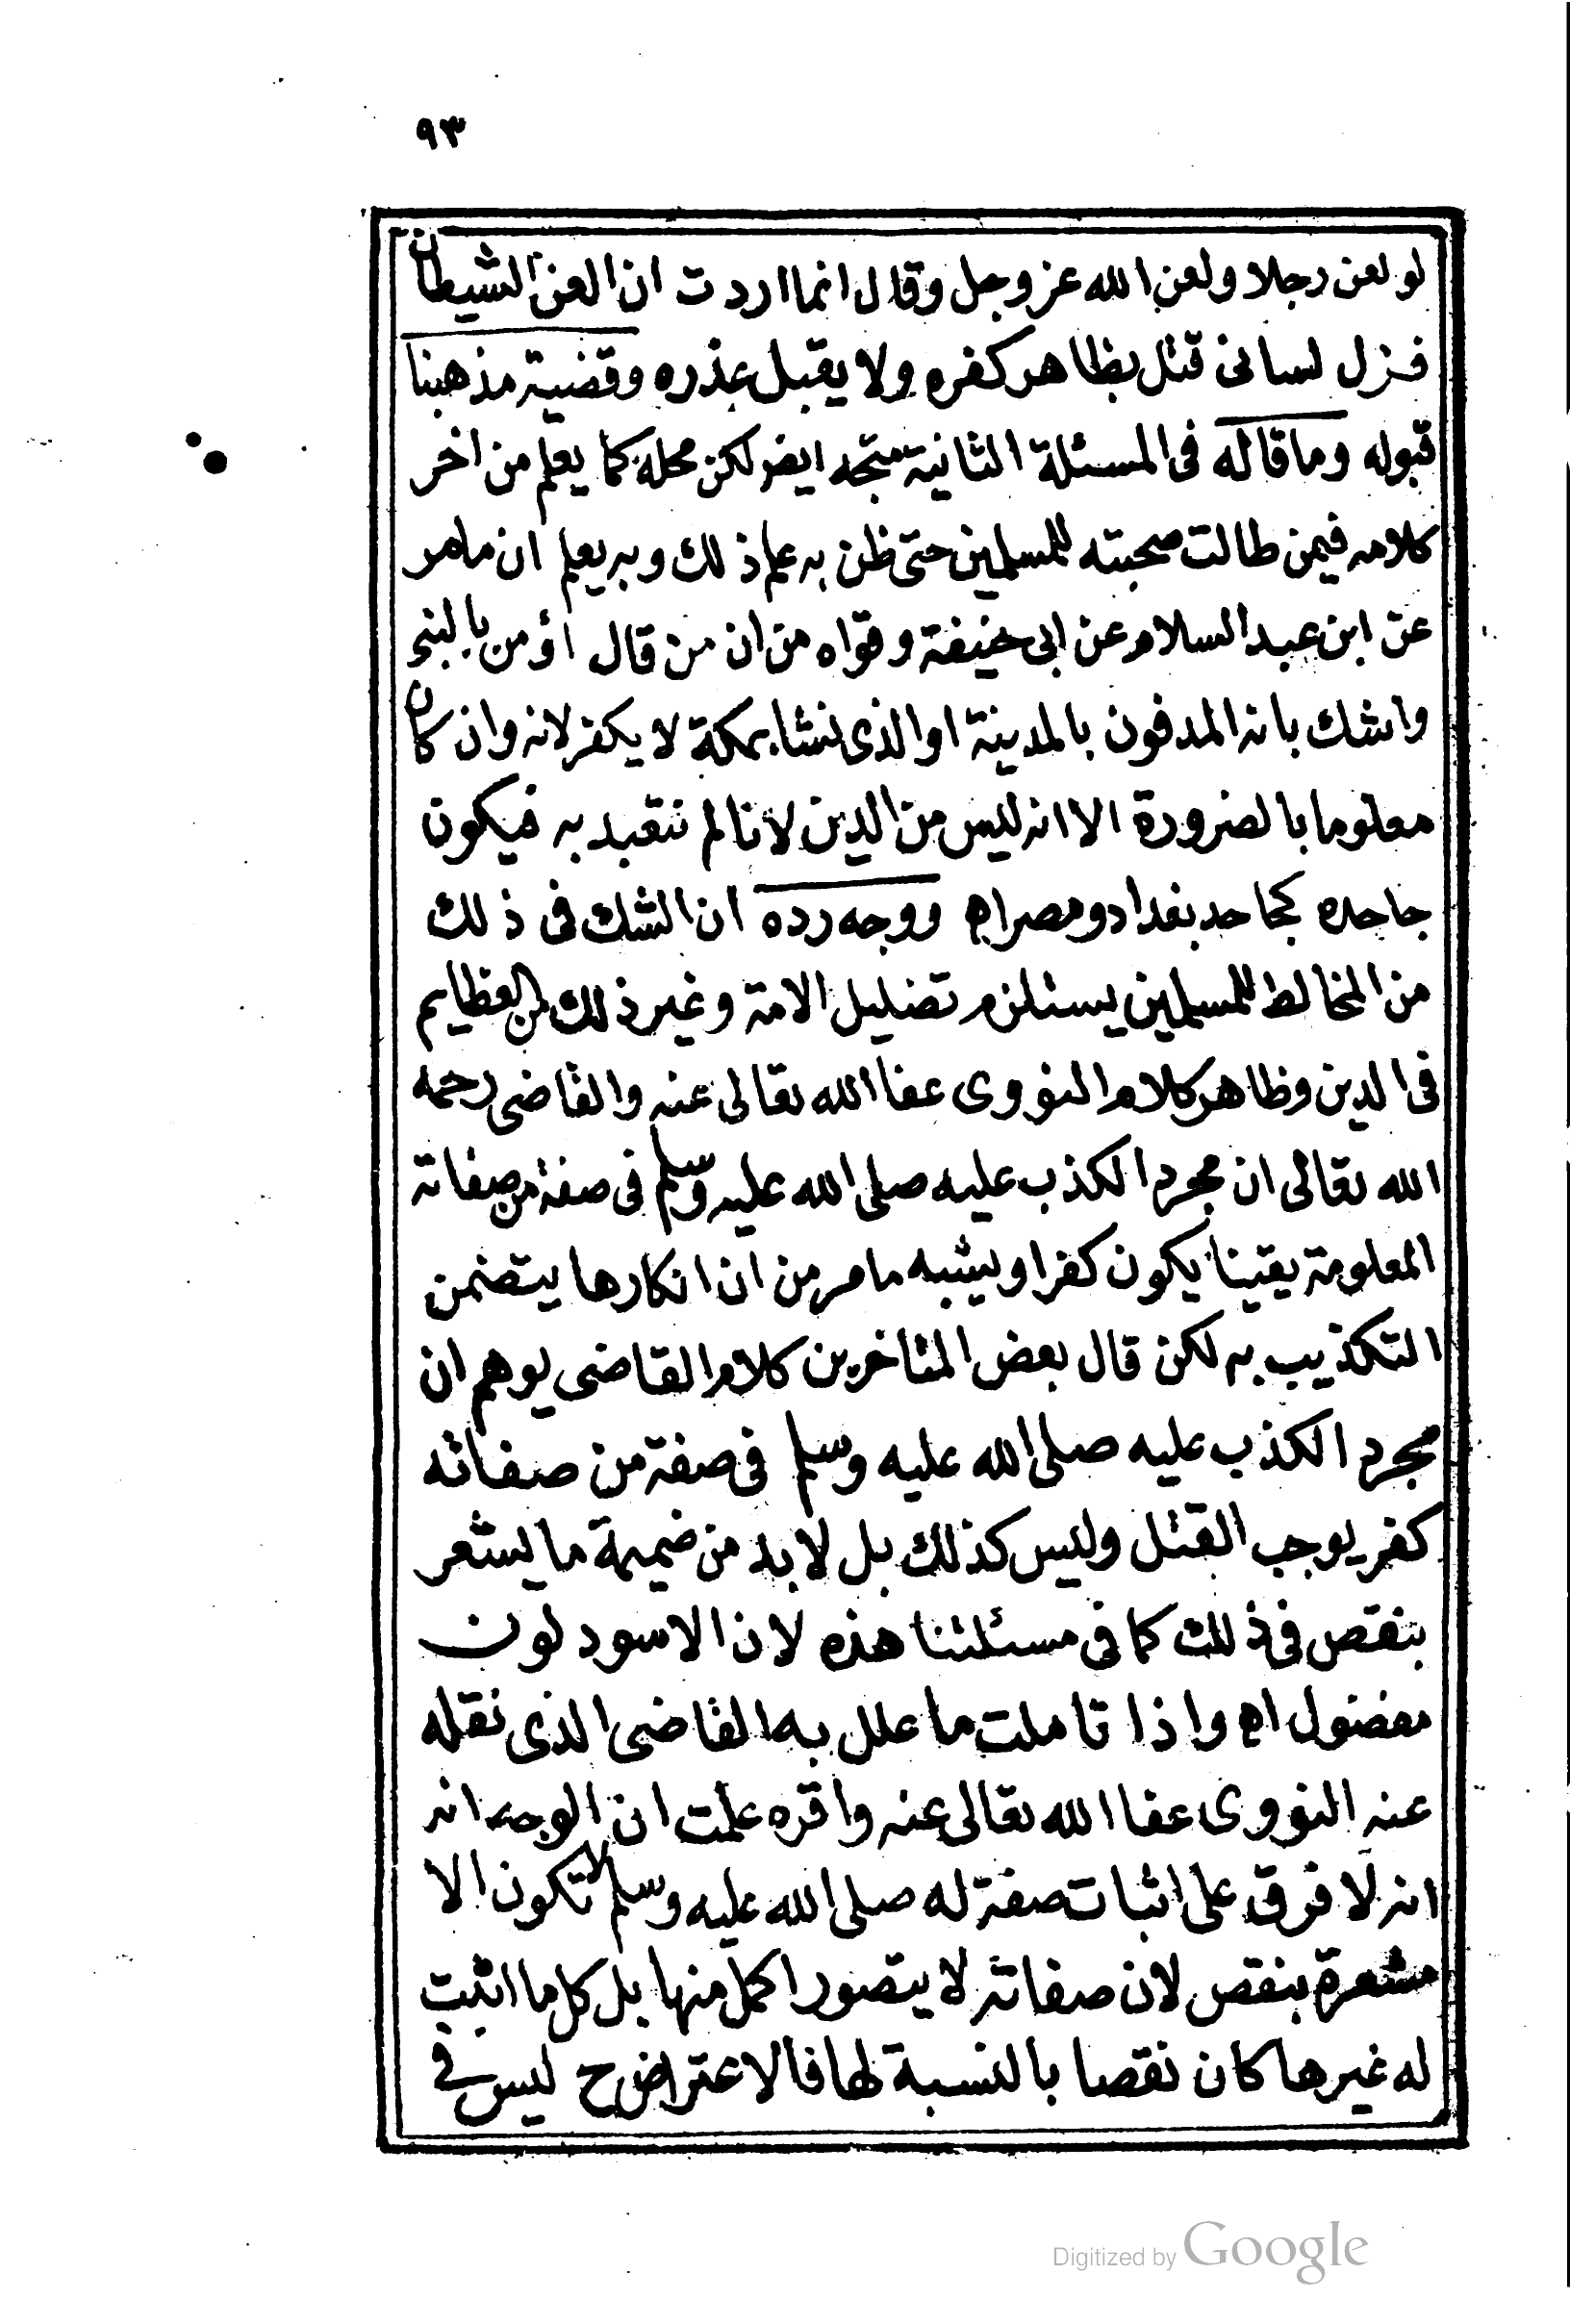 ٩٣
لو لعن رجلا ولعن الله عز وجل وقال انما اردت ان العن الشيطان
فزل لسانى قتل بظاهر كفره ولا يقبل عذره وقضية مذهبنا
قبوله وما قاله فى المسئلة الثانية متجه ايضر لكن محله كما يعلم من اخر
كلامه فيمن طالت صحبته للمسلمين حتى ظن به علم ذلك وبه يعلم ان ما مر
عن ابن عبد السلام عن ابى حنيفة وقواه من ان من قال اؤمن بالنبى
واشك بانه المدفون بالمدينة او الذى نشا بمكة لا يكفر لانه وان كان
معلوما بالضرورة الا انه ليس من الدين لانا لم نتعبد به فيكون
جاحده كجاحد بغداد ومصر اه ووجه رده ان الشك فى ذلك
من المخالط للمسلمين يستلزم تضليل الامة وغير ذلك من العظايم
فى الدين وظاهر كلام النووى عفا الله تعالى عنه والقاضى رحمه
الله تعالى ان مجرد الكذب عليه صلى الله عليه وسلم فى صفة من صفاته
المعلومة يقينا يكون كفرا ويشبه ما مر من ان انكارها يتضمن
التكذيب به لكن قال بعض المتاخرين كلام القاضى يوهم ان
مجرد الكذب عليه صلى الله عليه وسلم فى صفة من صفاته
كفر يوجب القتل وليس كذلك بل لا بد من ضميمة ما يشعر
بنقص فى ذلك كما فى مسئلتنا هذه لان الاسود لون
مفضول اه واذا تاملت ما علل به القاضى الذى نقله
عنه النووى عفا الله تعالى عنه واقره علمت ان الوجه انه
انه لا فرق على اثبات صفة له صلى الله عليه وسلم لا تكون الا
مشعرة بنقص لان صفاته لا يتصور اكمل منها بل كل ما اثبت
له غيرها كان نقصا بالنسبة لها فالاعتراض ح ليس فى
Digitized by Google